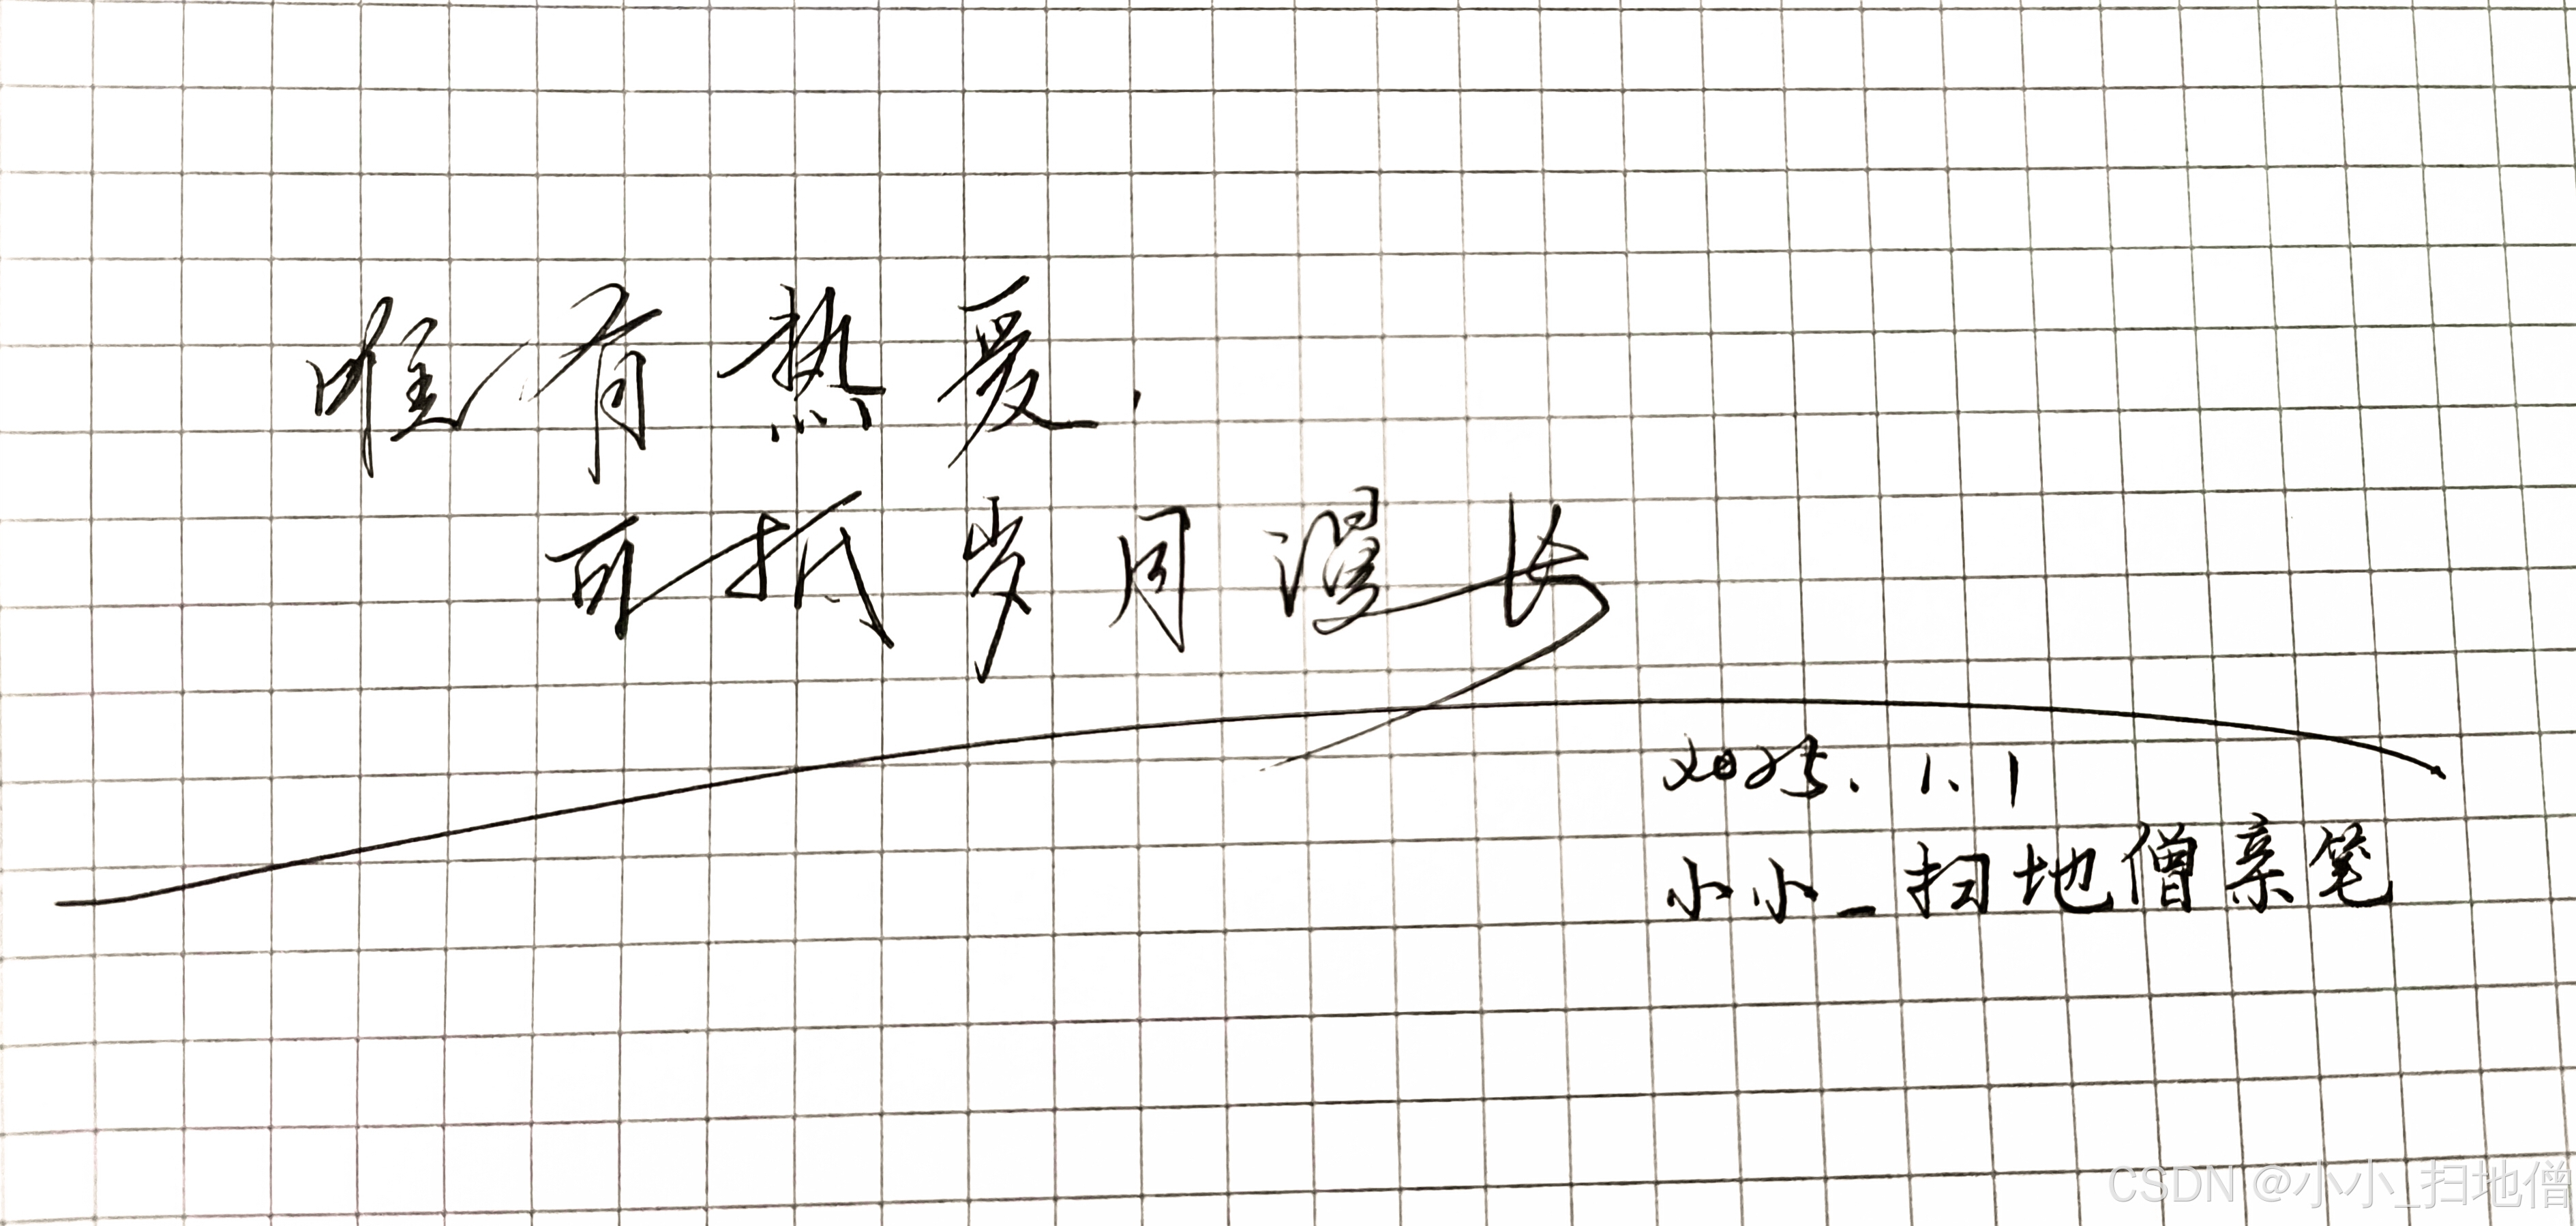 唯有热爱,
可抵岁月漫长
2025.1.1
小小_扫地僧亲笔
CSDN @小小_扫地僧